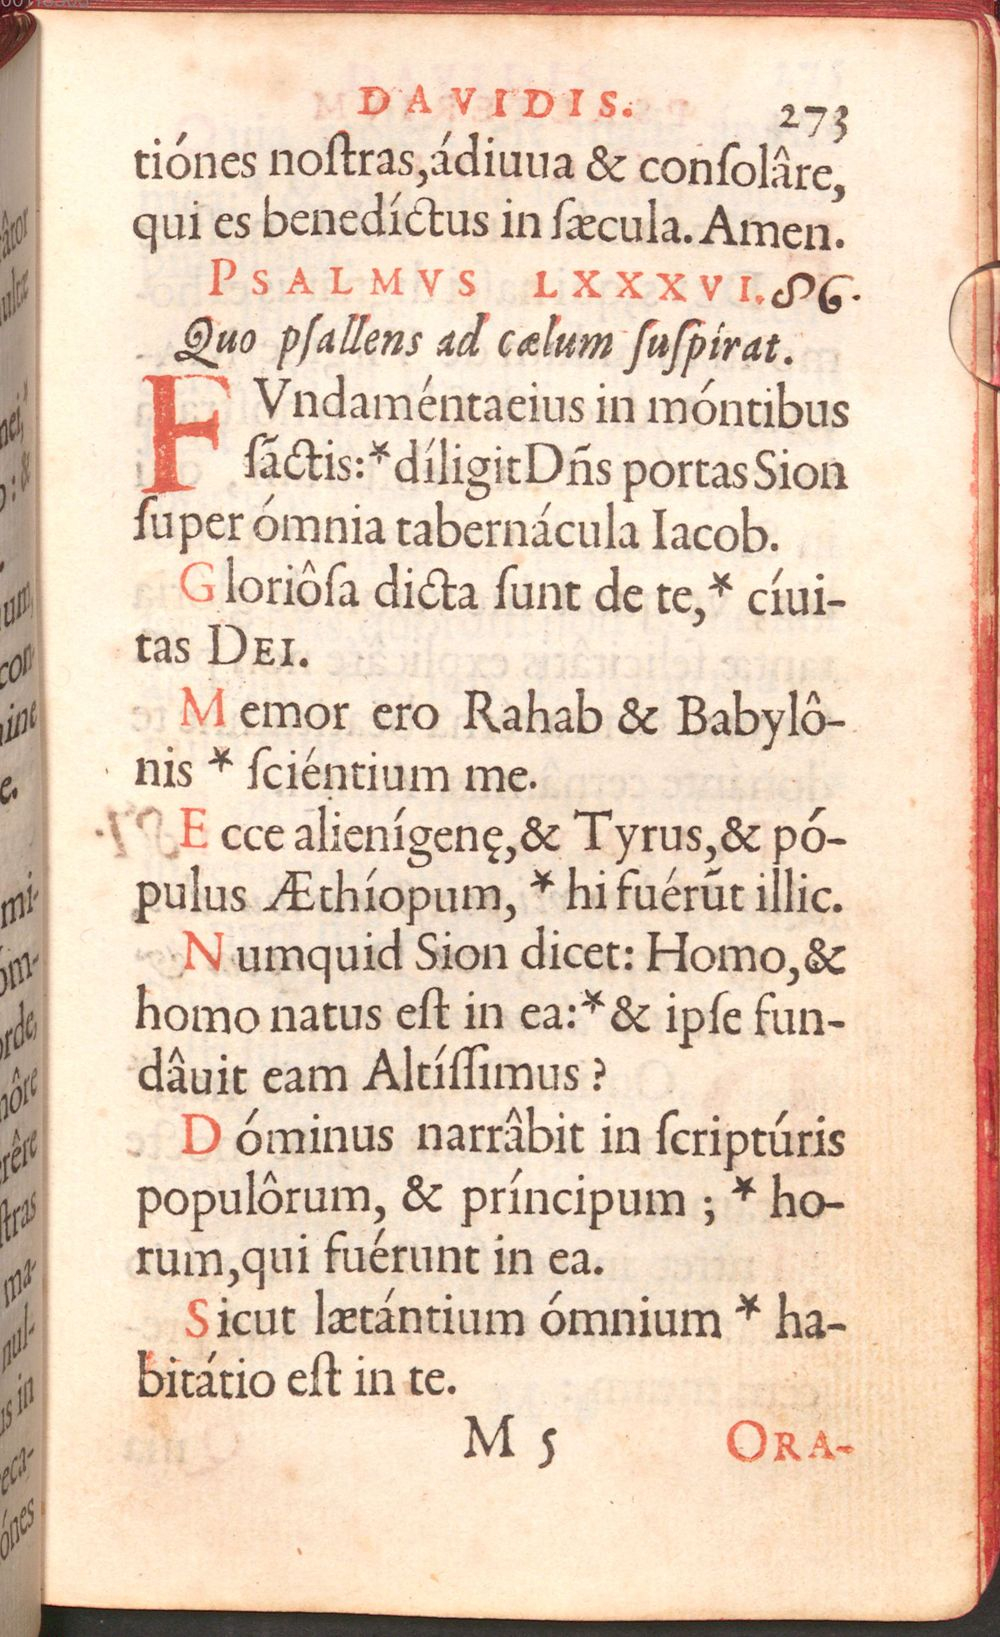 DAVIDIS.
273
tiónes noſtras,ádiuua & conſolâre,
qui es benedíctus in ſæcula. Amen.
PSALMVS LXXXVI. 86.
Quo pſallens ad cælum ſuſpirat.
FVndaméntaeius in móntibus
ſãctis:*díligitDñs portas Sion
ſuper ómnia tabernácula Iacob.
Gloriôſa dicta ſunt de te,* cíui-
tas DEI.
Memor ero Rahab & Babylô-
nis * ſciéntium me.
Ecce alienígenę,& Tyrus,& pó-
pulus Æthíopum, * hi fuérūt illic.
Numquid Sion dicet: Homo,&
homo natus eſt in ea:*& ipſe fun-
dâuit eam Altíſſimus ?
Dóminus narrâbit in ſcriptúris
populôrum, & príncipum ; * ho-
rum,qui fuérunt in ea.
Sicut lætántium ómnium * ha-
bitátio eſt in te.
M 5
ORA-